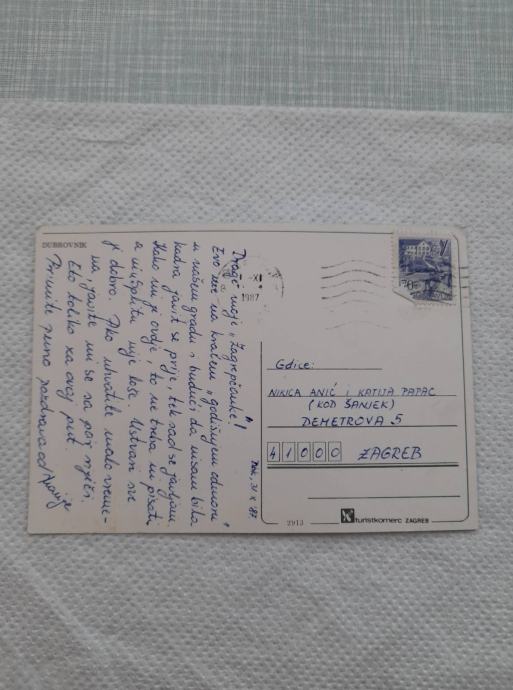 DUBROVNIK
Drage moje "Zagrepčanke"!
Evo me na kratkom "godišnjem odmoru"
u našem gradu i budući da nisam bila
kadra javit se prije, tek sad se javljam.
Kako mi je ovdje, to ne treba ni pisati
a u Splitu nije loše. Ustvari sve
je dobro. Ako uhvatite malo vreme-
na javite mi se sa par riječi.
Eto toliko za ovaj put.
Primite puno pozdrava od
XI
1987
Gdice:
NIKICA ANIĆ i KATIJA PAPAC
(KOD ŠANJEK)
DEMETROVA 5
41000 ZAGREB
2913
turistkomerc ZAGREB